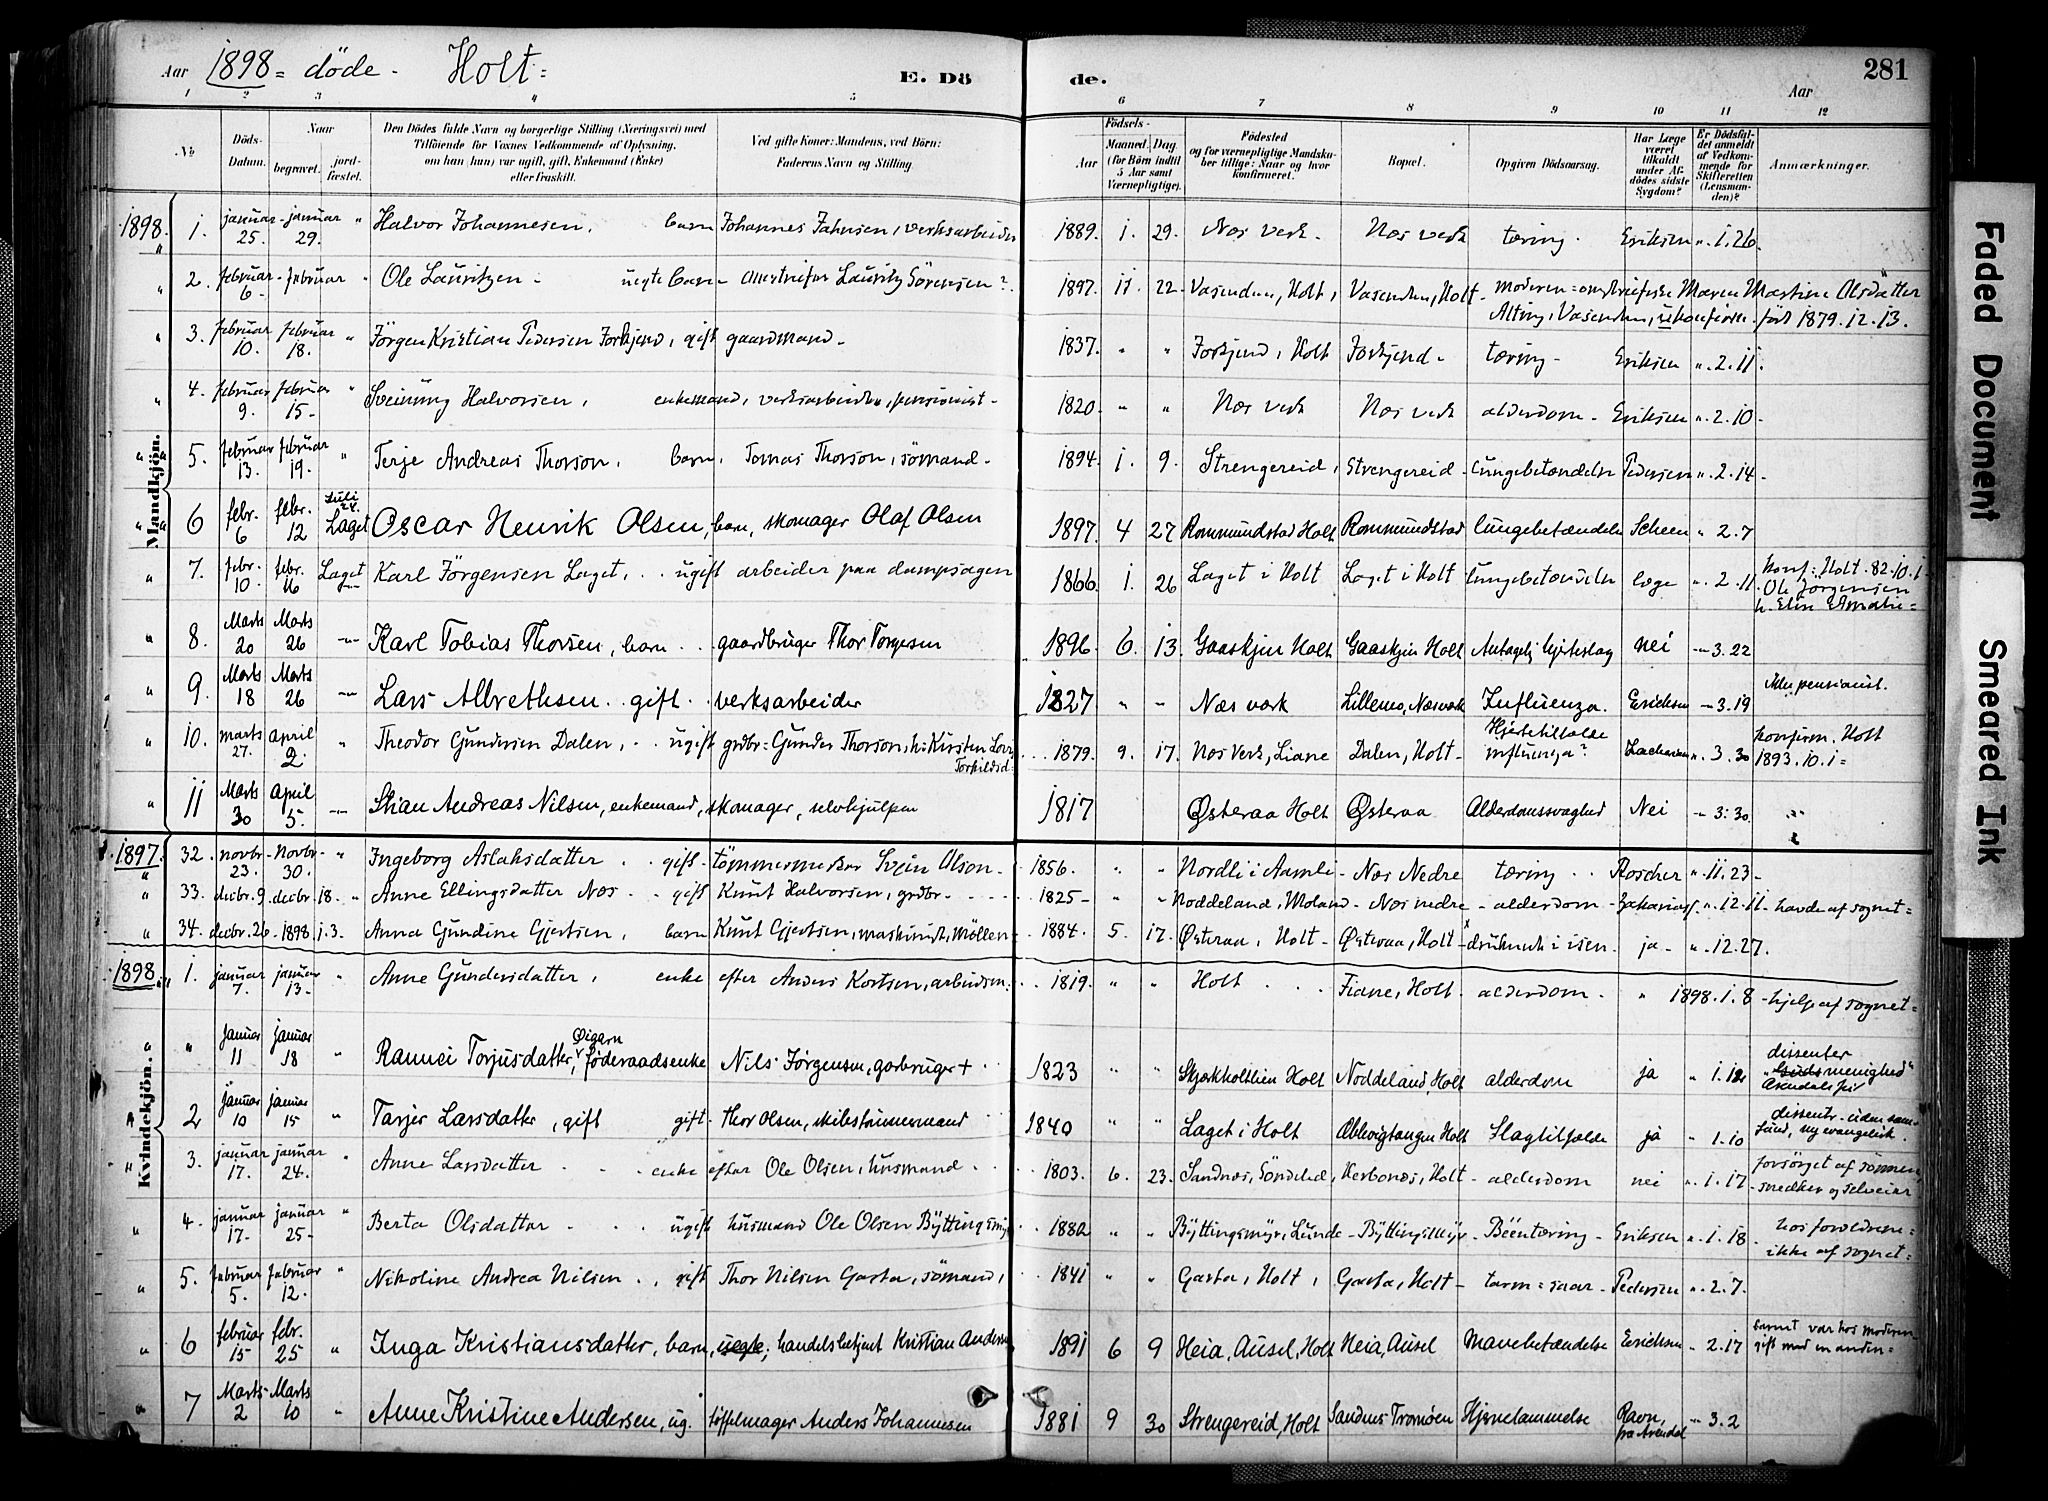 Aar 1898 = döde - Holt =
E. Dö de.
Aar
281
1 2 3 4 5 6 7 8 9 10 11 12
No
Döds-Datum.
Naar
begravet.
jord-fæstet.
Den Dödes fulde Navn og borgerlige Stilling (Næringsvei) med
Tilföiende for Voxnes Vedkommende af Oplysning,
om han (hun) var ugift, gift, Enkemand (Enke)
eller fraskilt.
Ved gifte Koner: Mandens, ved Börn:
Faderens Navn og Stilling.
Födsels-
Aar
Maaned. Dag.
(for Börn indtil
5 Aar samt
Værnepligtige).
Födested
og for værnepligtige Mandsku-
ber tillige: Naar og hvor
konfirmeret.
Bopæl.
Opgiven Dödsaarsag.
Har Læge
været
tilkaldt
under Af-
dödes sidste
Sygdom?
Er Dödsfal-
det anmeldt
af Vedkom-
mende for
Skifteretten
(Lensman-
den)?
Anmærkninger.
Mandkjön.
1898. 1. januar 25. januar 29. " Halvor Johannesen, barn Johannes Jahnsen, verksarbeider 1889. 1. 29. Nes verk. Nes verk tæring. Eriksen ". 1. 26.
" 2. februar 6 - februar " Ole Lauritzen - uegte barn - Lauritz Sörensen? 1897. 11. 22. Vasenden, Holt, Vasenden, Holt - moderen = Maren Martine Olsdatter
Alting, Vasenden, född 1879. 12. 13.
" 3. februar 10. februar 18. " Jörgen Kristian Pedersen Forkjend, gift gaardmand - 1837. " " Forkjend, Holt Forkjend - tæring - Eriksen ". 2. 11.
" 4. februar 9. februar 15 - " Sveinung Halvorsen, enkemand, verksarbeider, pensionist - 1820. " " Nes verk Nes verk alderdom - Eriksen ". 2. 10
" 5. februar 13. februar 19. " Terje Andreas Thorson, barn, Tomas Thorson, sömand - 1894. 1. 9. Strengereid, Strengereid - lungebetændelse Pedersen ". 2. 14.
" 6 febr. 6 febr. 12 Laget Oscar Henrik Olsen, barn, skomager Olaf Olsen 1897. 4 27 Rommundstad Holt Rommundstad lungebetændelse Scheen " 2. 7
" 7. febr. 10. febr. 16 Laget Karl Jörgensen Laget, .. ugift arbeider paa dampsagen 1866. 1. 26 Laget i Holt Laget i Holt lungebetændelse læge " 2. 11. konf: Holt. 82. 10. 1.
Ole Jörgensen
h. Elin Amalie =
" 8. Marts 20 Marts 26 Karl Tobias Thorsen, barn .. gaardbruger Thor Torgesen 1896 6. 13. Gaaskjen Holt Gaaskjen Holt Antagelig hjerteslag nei 3. 22
" 9. Marts 18 Marts 26 Lars Albrethsen .. gift. verksarbeider 1827 " - Næs værk Lillemo, Næsværk Influenza. Ericksen 3. 19 pensionist.
" 10. marts 27. april 2 " Theodor Gundersen Dalen, .. ugift grdbr = Gunder Thorson, h: Kirsten
Torkildsd. 1879. 9. 17. Nes Verk, Liane Dalen, Holt - Hjertetilfælde
influenza? Zacharias ". 3. 30 konfirm. Holt
1893. 10. 1 =
" 11 Marts 30 april 5. Stian Andreas Nilsen, enkemand, skomager, selvhjulpen 1817 Østeraa Holt Østeraa Alderdomssvaghed Nei 3. 30.
1897. 32. novbr - 23. Novbr - 30. " Ingeborg Aslaksdatter .. gift - tömmermester Svein Olson - 1856. " " Nordli i Aamli - Nes Nedre tæring .. Roscher ". 11. 23 -
" 33. decbr. 9. decbr. 18. " Anne Ellingsdatter Nes - gift Knut Halvorsen, grdbr. - 1825 - " " Noddeland, Moland - Nes nedre - alderdom - Zakarias. ". 12. 11. - havde af sognet =
" 34. decbr. 26. 1898 1. 3. Anna Gundine Gjertsen, barn Knut Gjertsen, maskinist, Möllen - 1884. 5. 17. Østeraa, Holt - Østeraa, Holt - druknet i isen. ja - ". 12. 27.
Kvindekjön.
1898. 1. januar 7. januar 13. " Anne Gundersdatter, enke efter Anders Kortsen, arbeidsm. . 1819. " " Holt ... Fiane, Holt. alderdom. " 1898. 1. 8 - hjelp af sognet =
" Januar 11 januar 18 " Rannei Torjusdatter, Øigarn föderaadsenke Nils Jörgensen, garbruger + 1823 " " Skjerkholtlien Holt Noddeland, Holt alderdom ja " 1. 12. dissenter
menighed"
2 januar 10 januar 15 " Tarjer Larsdatter, gift gift. Thor Olsen, skibstömmermand 1840 " " Laget i Holt Ablevigtangen Holt Slagtilfælde ja " 1. 10 dissentr. uden sam-
fund, ny evangelisk.
" 3. januar 17. januar 24. " Anne Larsdatter . . - enke efter Ole Olsen, husmand . . 1803. 6. 23. Sandnes, Söndeled, Kverbones, Holt - alderdom nei ". 1. 17 forsörget af sönnen,
snedker og selveier
" 4. januar 17. januar 25 - " Berta Olsdatter - . . ugift husmand Ole Olsen Byttingsmyr 1882 " " Byttingsmyr, Lunde - Byttingsmyr - Beentæring - Eriksen ". 1. 18 hos foreldrene =
ikke af sognet =
" 5. februar 5. februar 12. " Nikoline Andrea Nilsen . . gift Thor Nilsen Garta, sömand, 1841 " " Garta, Holt, Garta, Holt - tarm = saar - Pedersen ". 2. 7.
" 6 februar 15 febr. 25 " Inga Kristiansdatter, barn, uegte; handelsbetjent Kristian Andersen 1891 6 9 Heia, Ausel, Holt Heia, Ausel Mavebetændelse Ericksen - 2. 17 barnet var hos moderen
gift med en anden =
" 7 Marts 2 Marts 10 " Anne Kristine Andersen, ug. töffelmager Anders Johannesen 1881 9 30 Strengereid, Holt Sandnes Tromöen Hjernelammelse Ravn,
fra Arendal 3. 2
Faded Document
Smeared Ink